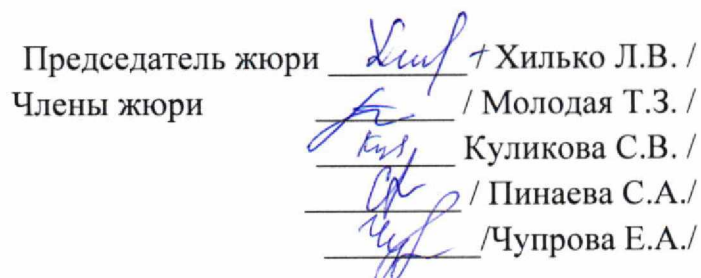 Председатель жюри / Хилько Л.В. /
Члены жюри / Молодая Т.З. /
Куликова С.В. /
/ Пинаева С.А./
/Чупрова Е.А./